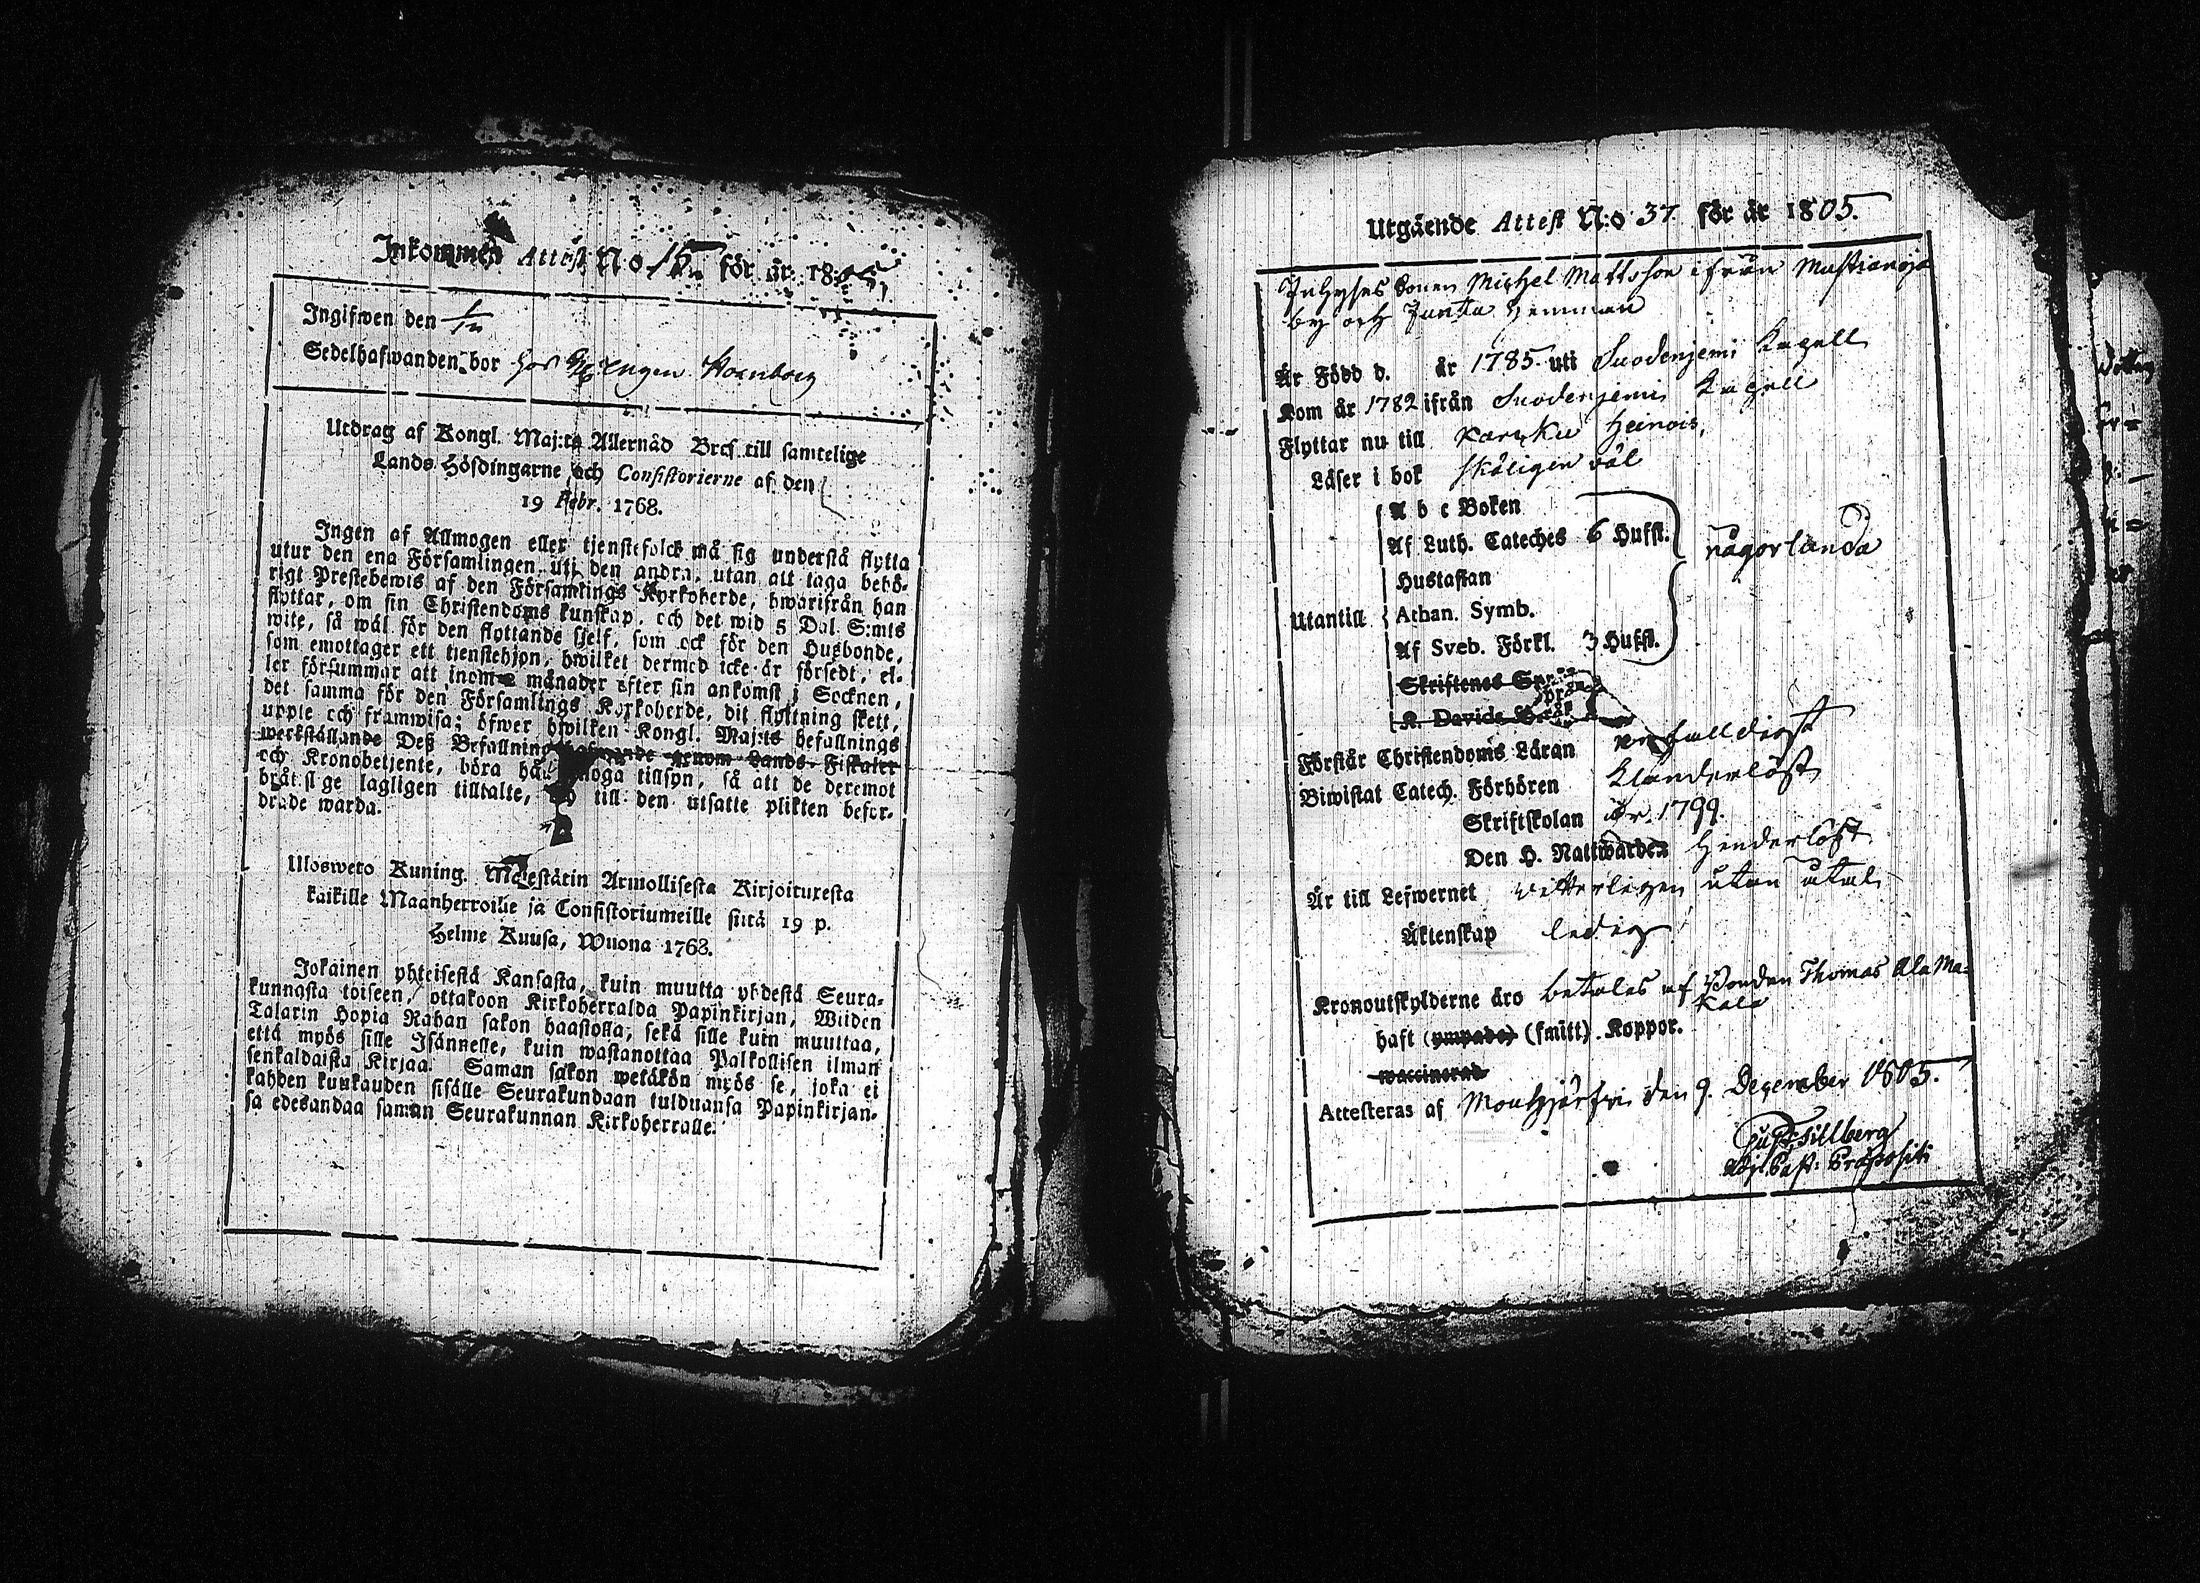 Inkommen Attest No 15 för år 1805
Ingifwen den
Sedelhafwanden bor hos
Utdrag af Kongl. Maj:ts Allernåd Bref till samtelige
Lands Höfdingarne och Consistorierne af den
19 Febr. 1768.
Ingen af Allmogen eller tjenstefolck må sig understå flytta
utur den ena Församlingen uti den andra, utan att taga behö-
rigt Prestebewis af den Församlings Kyrkoherde, hwarifrån han
flyttar, om sin Christendoms kunskap, och det wid 5 Dal. S:mts
wite, så wäl för den flyttande sjelf, som ock för den Husbonde,
som emottager ett tjenstehjon, hwilket dermed icke är försedt, el-
ler försummar att inom 2 månader efter sin ankomst i Socknen,
det samma för den Församlings Kyrkoherde, dit flyttning skett,
uppte och framwisa; öfwer hwilken Kongl. Maj:ts befallnings
werkställande Deß Befallningshafwande genom Lands-Fiskaler
och Kronobetjente, böra hålla noga tillsyn, så att de deremot
brätslige lagligen tilltalte, och till den utsatte plikten befor-
drade warda.
Ulosweto Kuning. Majestätin Armollisesta Kirjoituxesta
kaikille Maanherroille ja Consistoriumeille siitä 19 p.
Helme Kuusa, Wuona 1768.
Jokainen yhteisestä Kansasta, kuin muutta yhdestä Seura-
kunnasta toiseen, ottakoon Kirkoherralda Papinkirjan, Wiiden
Talarin Hopia Rahan sakon haastolla, sekä sille kuin muuttaa,
että myös sille Isännelle, kuin wastanottaa Palkollisen ilman
senkaldaista Kirjaa. Saman sakon wetäkön myös se, joka ei
kahden kuukauden sisälle Seurakundaan tulduansa Papinkirjan-
sa edesandaa saman Seurakunnan Kirkoherralle.
Utgående Attest N:o 37. för år 1805.
Inhyses Sonen Michel Mattsson ifrån Mustianoja
by och Juntta Hemman
Är Född d. år 1785 uti Suodenjemi Kapell
Kom år 1782 ifrån Suodenjemi Kapell
Flyttar nu till Karkku Heinois,
Läser i bok skäligen väl
A b c Boken
Af Luth. Cateches 6 Hufst.
någorlunda
Hustaflan
Utantill Athan. Symb.
Af Sveb. Förkl. 3 Hufst.
Skriftenes Språk
K. Davids
Förstår Christendoms Läran enfalldigt
Biwistat Catech. Förhören Klanderlöst
Skriftskolan år 1799.
Den H. Nattwarden Hinderlöst
Är till Lefwernet witterligen utan åtal
Äktenskap ledig
Kronoutskylderne äro betales af Bonden Thomas Ala Ma-
kala
haft (ympade) (smitt). Koppor.
waccinerad
Attesteras af Mouhijärfvi den 9. December 1805.
Gust. Tillberg
Adj. Past: Præpositi